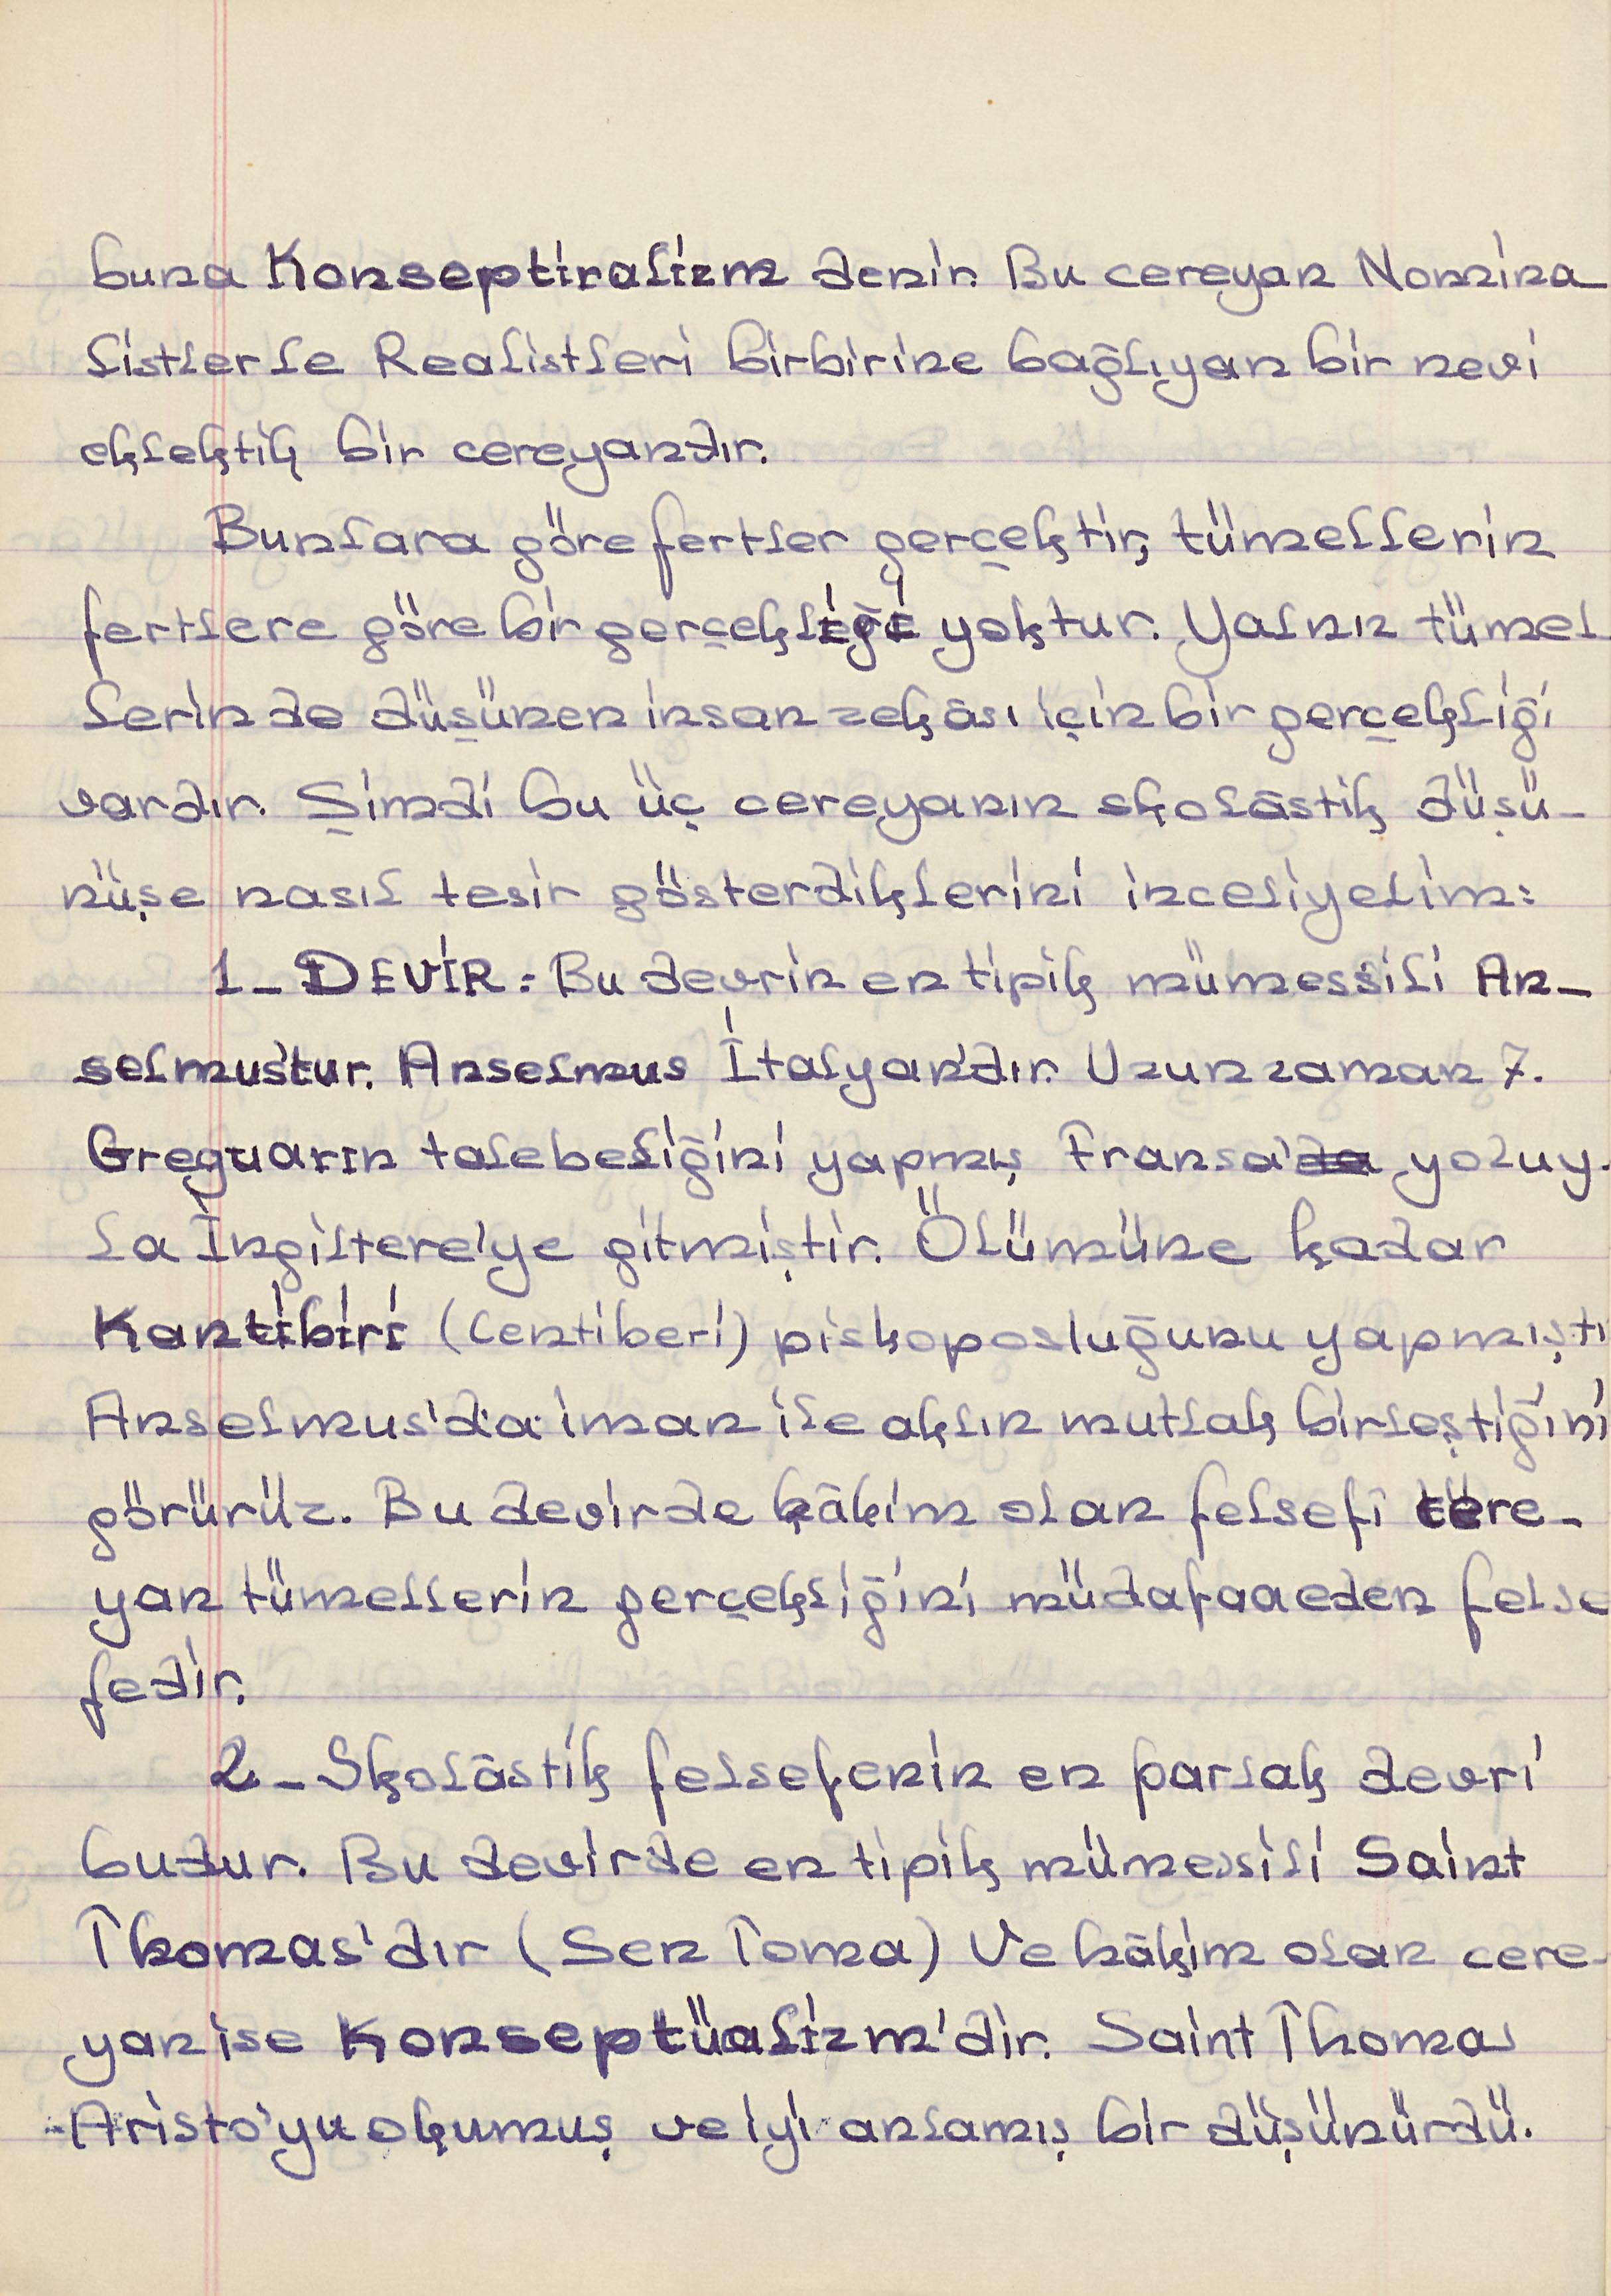 buna Konseptiralizm denir. Bu cereyan Nomina-
listlerle Realistleri birbirine bağlıyan bir nevi
eklektik bir cereyandır.
Bunlara göre fertler gerçektir, tümellerin
fertlere göre bir gerçekliği yoktur. Yalnız tümel
lerinde düşünen insan zekâsı için bir gerçekliği
vardır. Şimdi bu üç cereyanın skolâstik düşü-
nüşe nasıl tesir gösterdiklerini inceliyelim:
1- DEVİR: Bu devrin en tipik mümessili An-
selmus'tur. Anselmus İtalyan'dır. Uzun zaman 7.
Greguarın talebeliğini yapmış Fransa' yoluy-
la İngiltere'ye gitmiştir. Ölümüne kadar
Kantibiri (Centiberi) piskoposluğunu yapmıştı
Anselmus'da iman ile aklın mutlak birleştiğini
görürüz. Bu devirde hâkim olan felsefi cere-
yan tümellerin gerçekliğini müdafaa eden felse
fedir.
2- Skolâstik felsefenin en parlak devri
budur. Bu devirde en tipik mümessili Saint
Thomas'dır (Sen Toma) Ve hâkim olan cere-
yan ise Konseptüalizm'dir. Saint Thomas
Aristo'yu okumuş ve iyi anlamış bir düşünürdü.